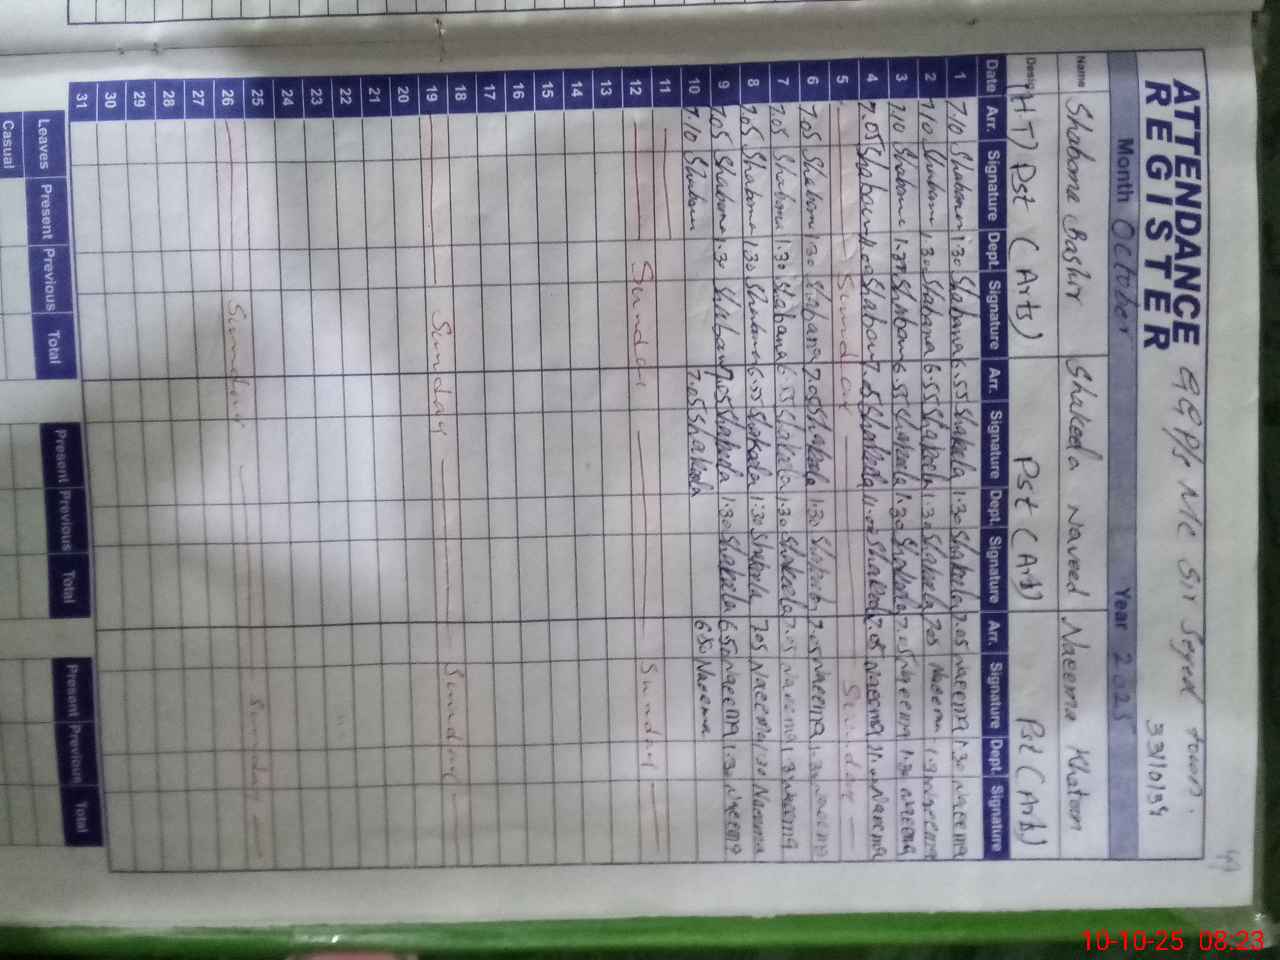 ATTENDANCE REGISTER GGP/s Mc Sir Seyed town.
3310134
Month October Year 2025
Name Shabana Bashir Shakeela Naveed Naeema Khatoon
Desig (HT) Pst (Arts) Pst (Arts) Pst (Arts)
Date Arr. Signature Dept. Signature Arr. Signature Dept. Signature Arr. Signature Dept. Signature
1 7.10 Shabana 1.30 Shabana 6.55 Shakeela 1.30 Shakeela 7.05 Naeema 1.30 Naeema
2 7.10 Shabana 1.30 Shabana 6.55 Shakeela 1.30 Shakeela 7.05 Naeema 1.30 Naeema
3 7.10 Shabana 1.30 Shabana 6.55 Shakeela 1.30 Shakeela 7.05 Naeema 1.30 Naeema
4 7.05 Shabana Shabana 7.05 Shakeela 11.00 Shakeela 7.05 Naeema Naeema
5 Sunday Sunday
6 7.05 Shabana 1.30 Shabana 7.05 Shakeela 1.30 Shakeela 7.05 Naeema 1.30 Naeema
7 7.05 Shabana 1.30 Shabana 6.55 Shakeela 1.30 Shakeela 7.05 Naeema 1.30 Naeema
8 7.05 Shabana 1.30 Shabana 6.55 Shakeela 1.30 Shakeela 7.05 Naeema 1.30 Naeema
9 7.05 Shabana 1.30 Shabana 7.05 Shakeela 1.30 Shakeela 6.55 Naeema 1.30 Naeema
10 7.10 Shabana 7.05 Shakeela 6.50 Naeema
11
12 Sunday Sunday
13
14
15
16
17
18
19 Sunday Sunday
20
21
22
23
24
25
26 Sunday Sunday
27
28
29
30
31
Leaves Present Previous Total Present Previous Total Present Previous Total
Casual
10-10-25 08:23